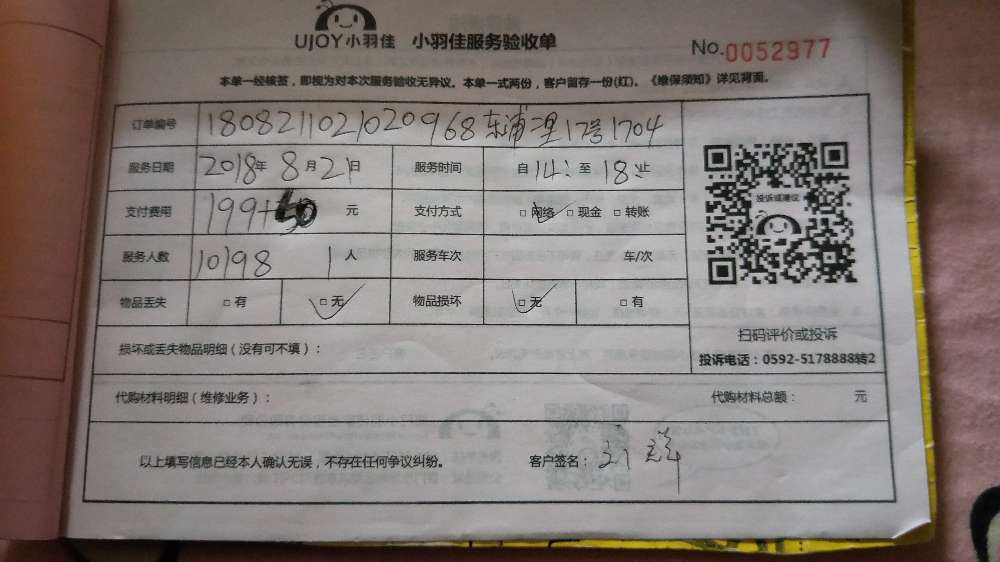 UJOY小羽佳 小羽佳服务验收单
No.0052977
本单一经核签，即视为对本次服务验收无异议。本单一式两份，客户留存一份(红)。《维保须知》详见背面。
订单编号 18082110210209​68 东浦一里17号1704
服务日期 2018年 8月21日 服务时间 自14:至18:止
支付费用 199+ 元 支付方式 □网络 □现金 □转账
服务人数 10198 1人 服务车次 车/次
物品丢失 □有 □无 物品损坏 □无 □有
投诉或建议
扫码评价或投诉
投诉电话：0592-5178888转2
损坏或丢失物品明细（没有可不填）：
代购材料明细（维修业务）： 代购材料总额： 元
以上填写信息已经本人确认无误，不存在任何争议纠纷。 客户签名：